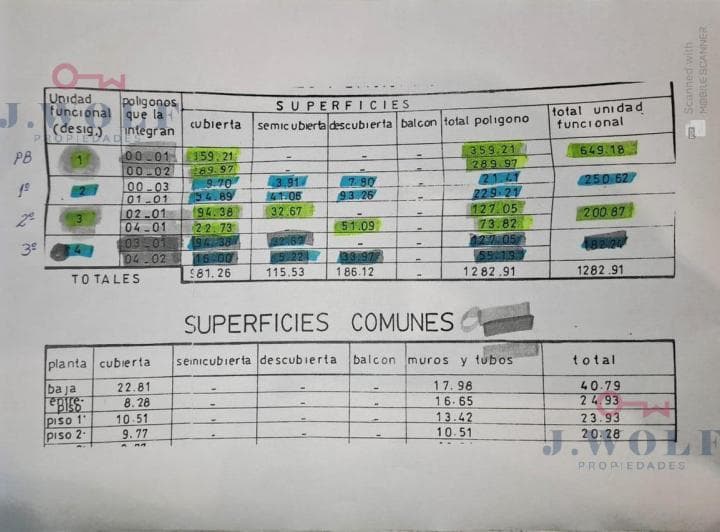 SUPERFICIES
Unidad funcional (desig.) | poligonos que la integran | cubierta | semicubierta | descubierta | balcon | total poligono | total unidad funcional
PB 1 | 00_01 | 359.21 | - | - | - | 359.21 | 649.18
00_02 | 289.97 | - | - | - | 289.97
1º 2 | 00_03 | 9.70 | 3.91 | 7.80 | - | 21.41 | 250.62
01_01 | 94.89 | 41.06 | 93.26 | - | 229.21
2º 3 | 02_01 | 94.38 | 32.67 | - | - | 127.05 | 200.87
04_01 | 22.73 | - | 51.09 | - | 73.82
3º 4 | 03_01 | 94.38 | 32.67 | - | - | 127.05
04_02 | 16.00 | 5.22 | 33.97 | - | 55.19
TOTALES | 981.26 | 115.53 | 186.12 | - | 1282.91 | 1282.91
SUPERFICIES COMUNES
planta | cubierta | semicubierta | descubierta | balcon | muros y tubos | total
baja | 22.81 | - | - | - | 17.98 | 40.79
entre-piso | 8.28 | - | - | - | 16.65 | 24.93
piso 1º | 10.51 | - | - | - | 13.42 | 23.93
piso 2º | 9.77 | - | - | - | 10.51 | 20.28
J.WOLF
PROPIEDADES
J.WOLF
PROPIEDADES
Scanned with
MOBILE SCANNER